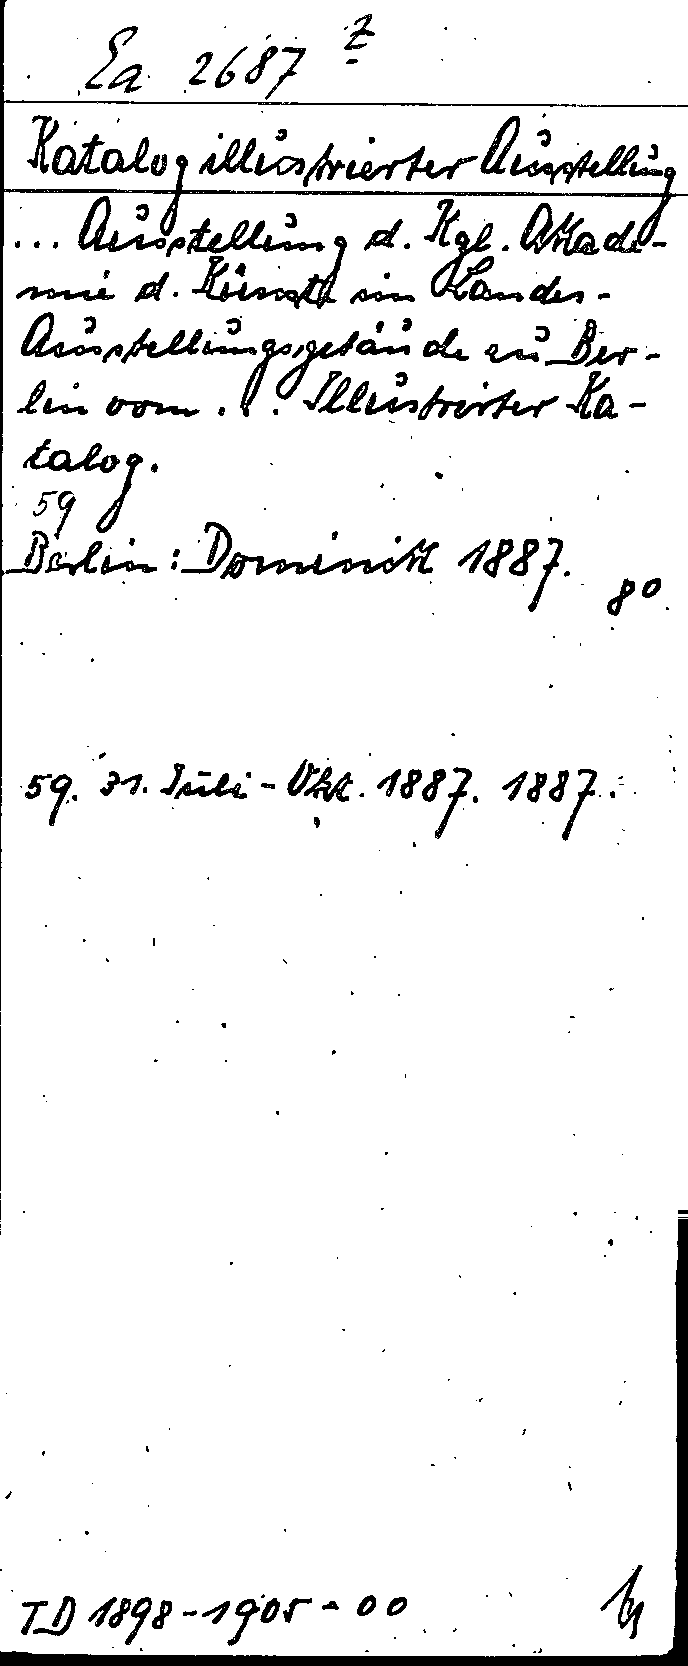 Ea 2687 Z
Katalog illustrierter Ausstellung
... Ausstellung d. Kgl. Akade-
mie d. Künste im Landes-
Ausstellungsgebäude zu Ber-
lin vom ... Illustrirter Ka-
talog.
59
Berlin: Dominik 1887.
8°
59. 31. Juli - Okt. 1887. 1887.
TD 1898-1905-00